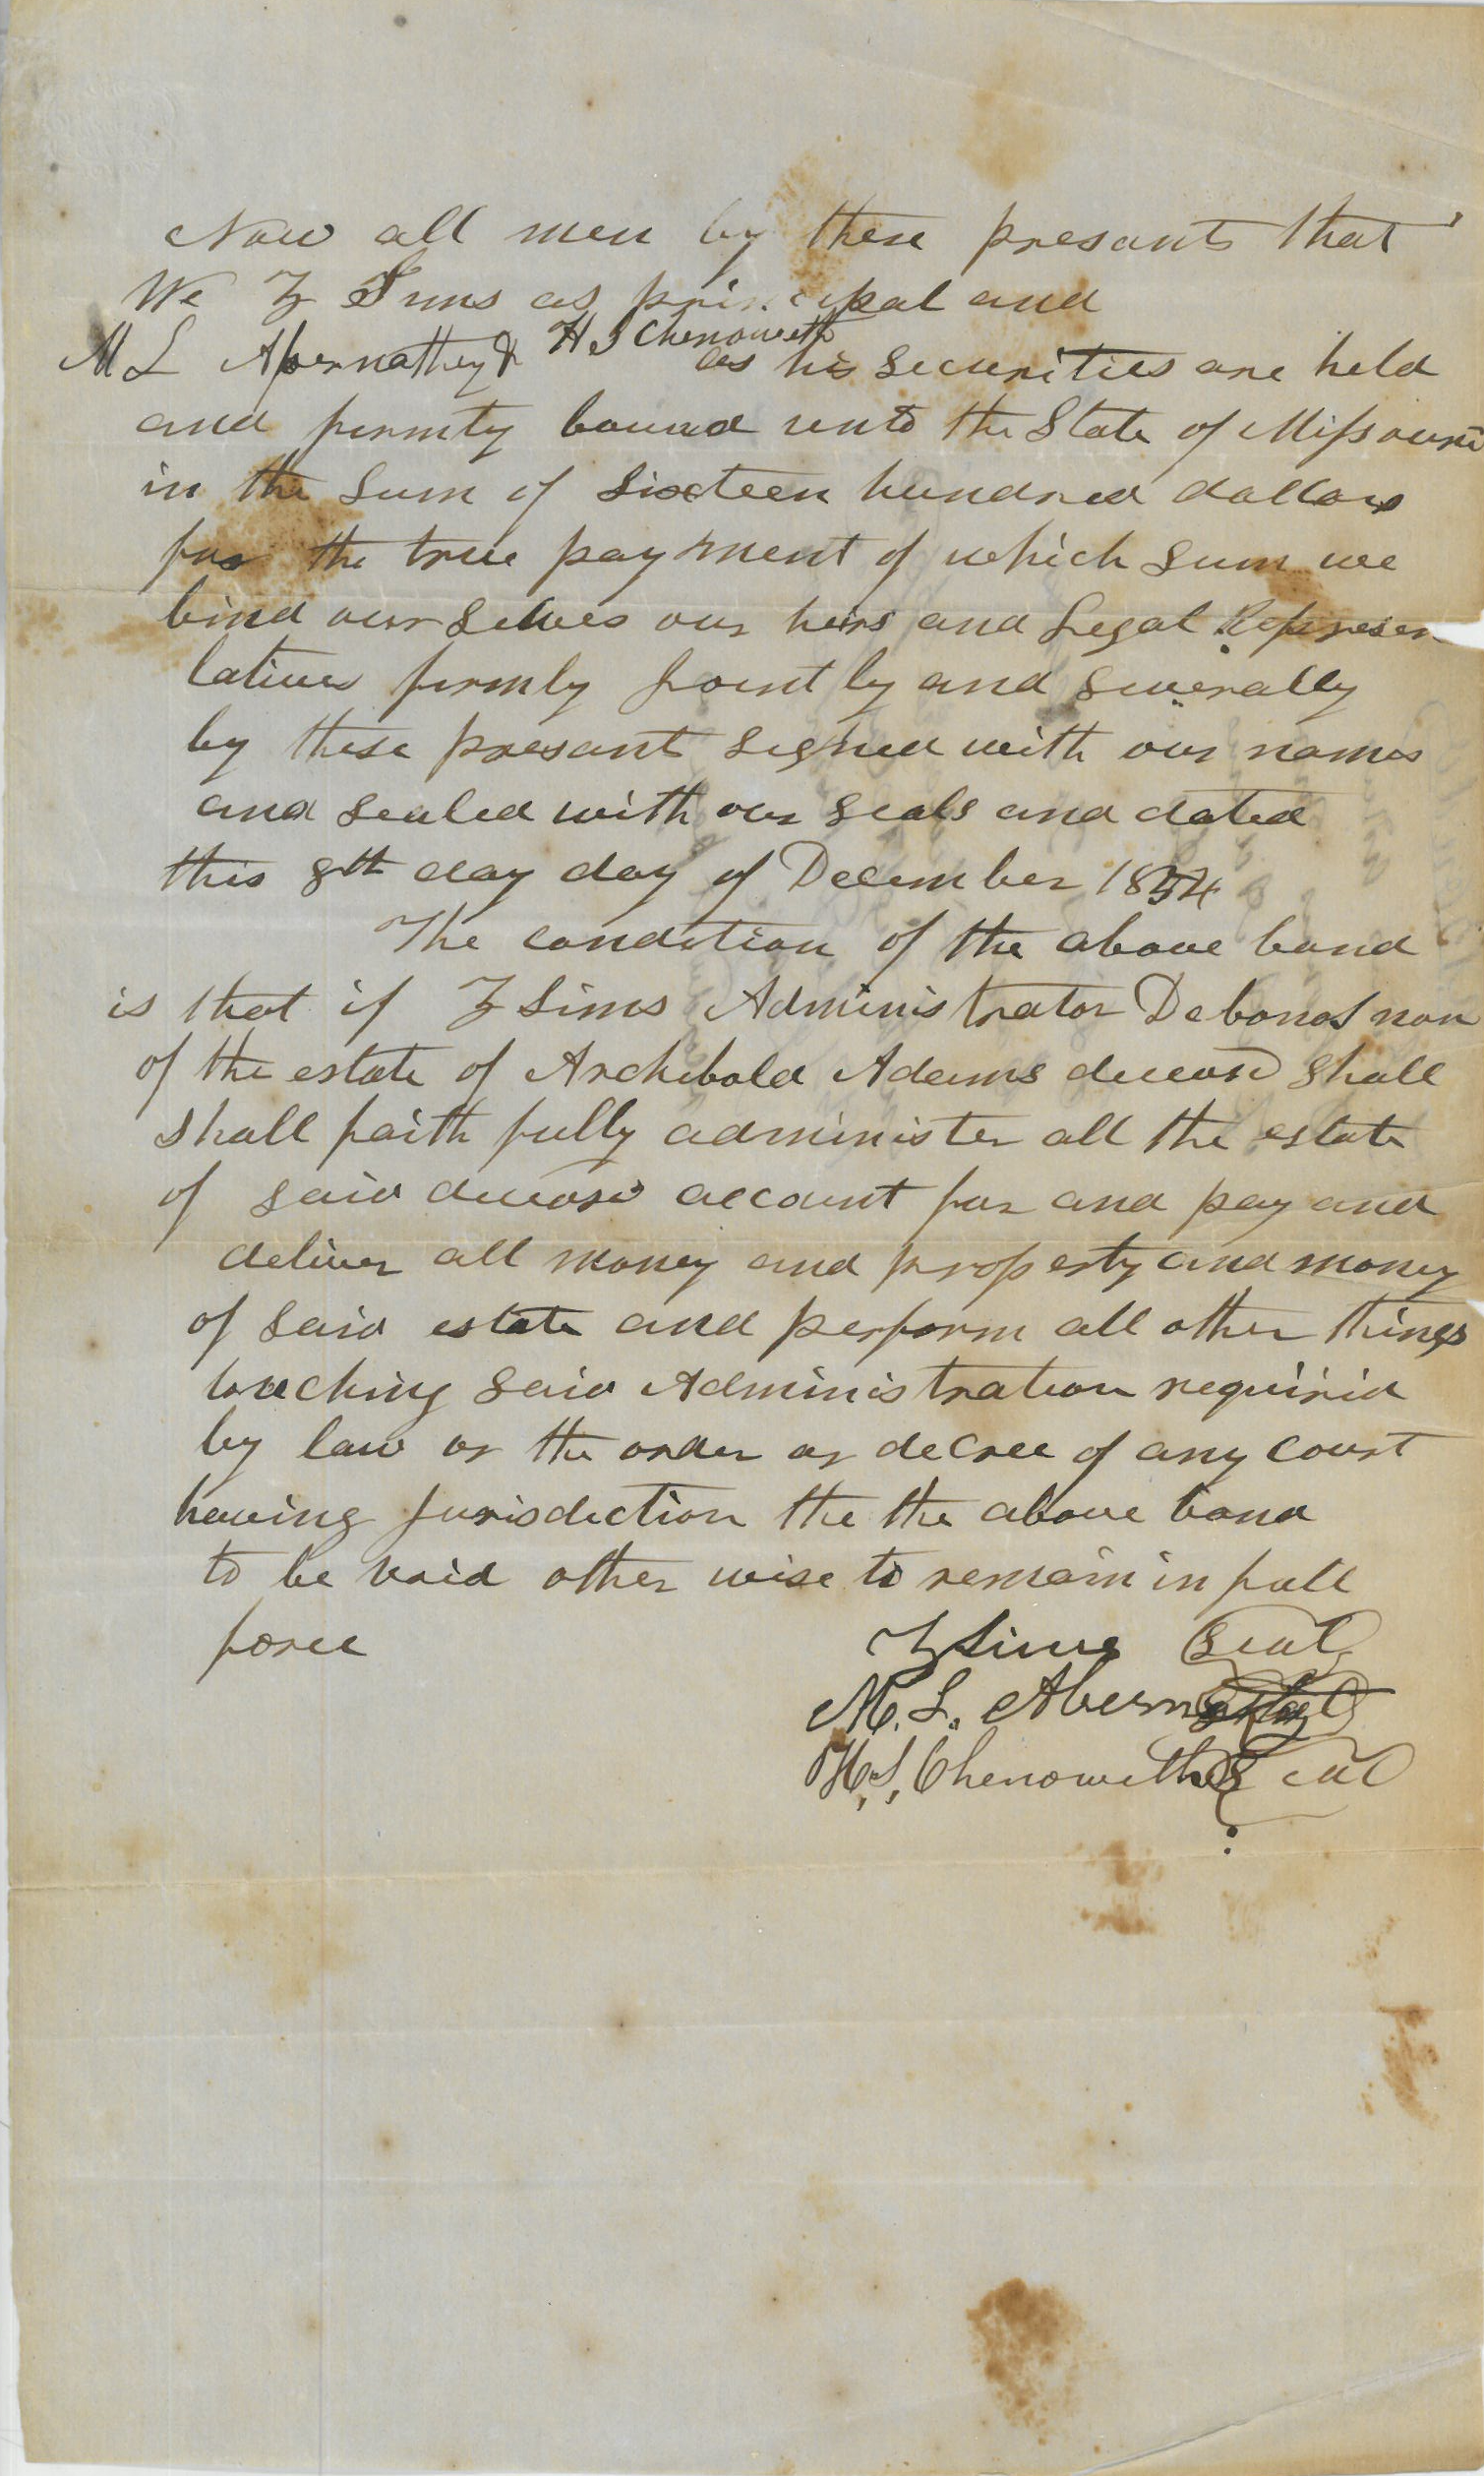 Now all men by these presants that
We Z Sims as principal and
M L Abernathey & H S Chenoweth as his securities are held
and firmty bound unto the State of Missouri
in the sum of sixteen hundred dollars
for the true payment of which sum we
bind our selves our heirs and Legal Represen
tatives firmly jointly and severally
by these presant signed with our names
and sealed with our seals and dated
this 8th day day of December 1854
The condition of the above bond
is that if Z Sims Administrator Debonas non
of the estate of Archibald Adams deceasd shall
shall faith fully administer all the estate
of said deceasd account for and pay and
deliver all money and property and money
of said estate and perform all other things
touching said Administration requirid
by law or the order or decree of any court
having jurisdiction the the above bond
to be void other wise to remain in full
force
Z Sims Seal
M. L. Abernathy Seal
H. S. Chenoweth Seal